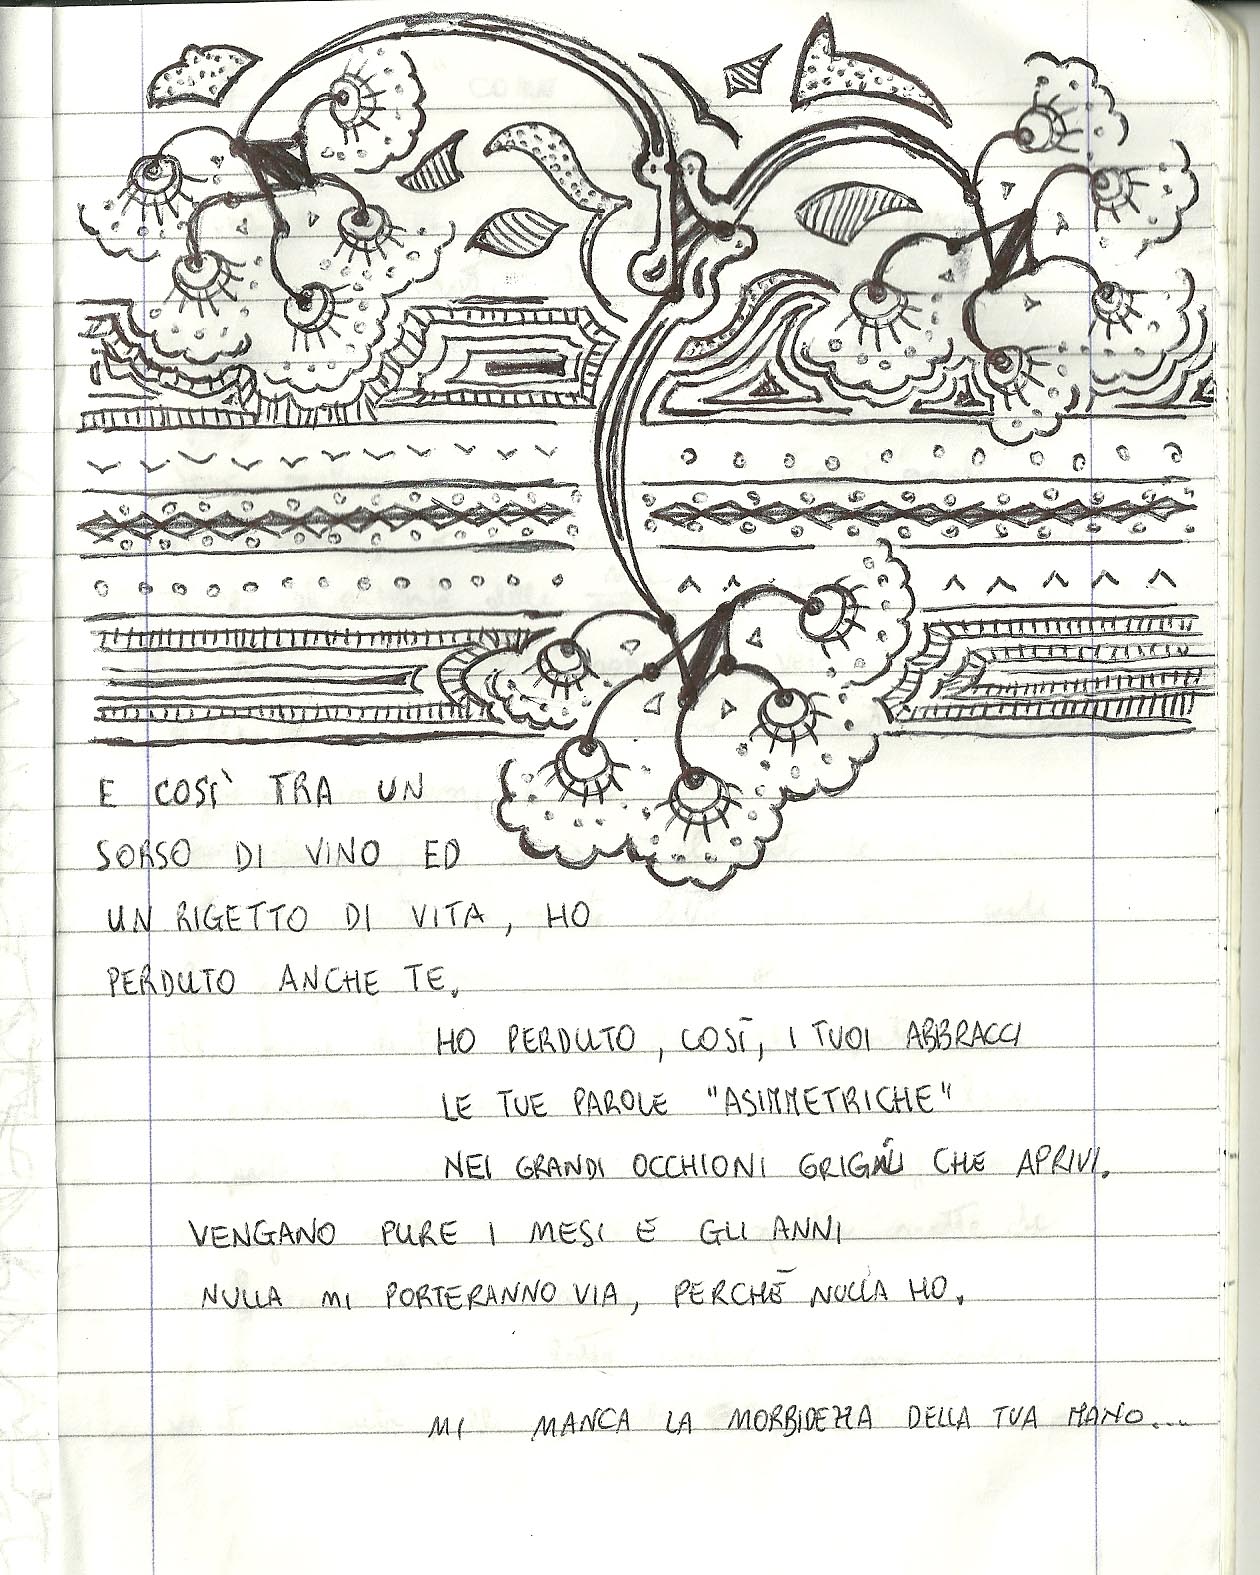 E COSÌ TRA UN
SORSO DI VINO ED
UN RIGETTO DI VITA, HO
PERDUTO ANCHE TE.
HO PERDUTO, COSÌ, I TUOI ABBRACCI
LE TUE PAROLE "ASIMMETRICHE"
NEI GRANDI OCCHIONI GRIGI CHE APRIVI.
VENGANO PURE I MESI E GLI ANNI
NULLA MI PORTERANNO VIA, PERCHÉ NULLA HO.
MI MANCA LA MORBIDEZZA DELLA TUA MANO...